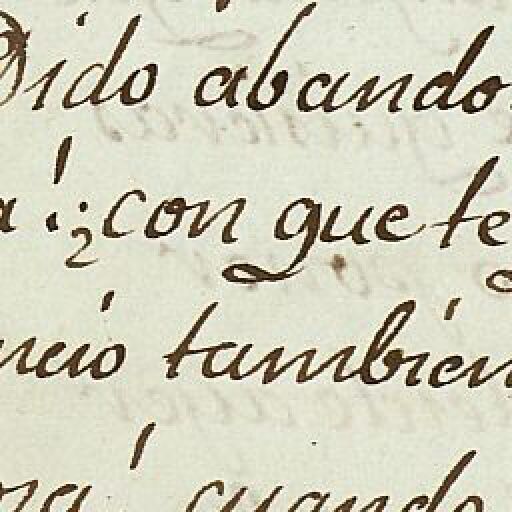 Dido abando
a! ¿con que te
neió tambien
ora! cuando